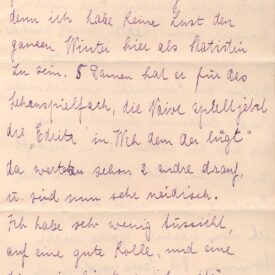 denn ich habe keine Lust den
ganzen Winter hier als Statistin
zu sein. 5 Damen hat er für das
Schauspielfach, die Naive spielt jetzt
die „Edrita in Weh dem der lügt"
da warteten schon 2 andre drauf,
u. sind nun sehr neidisch.
Ich habe sehr wenig Aussicht,
auf eine gute Rolle, und eine